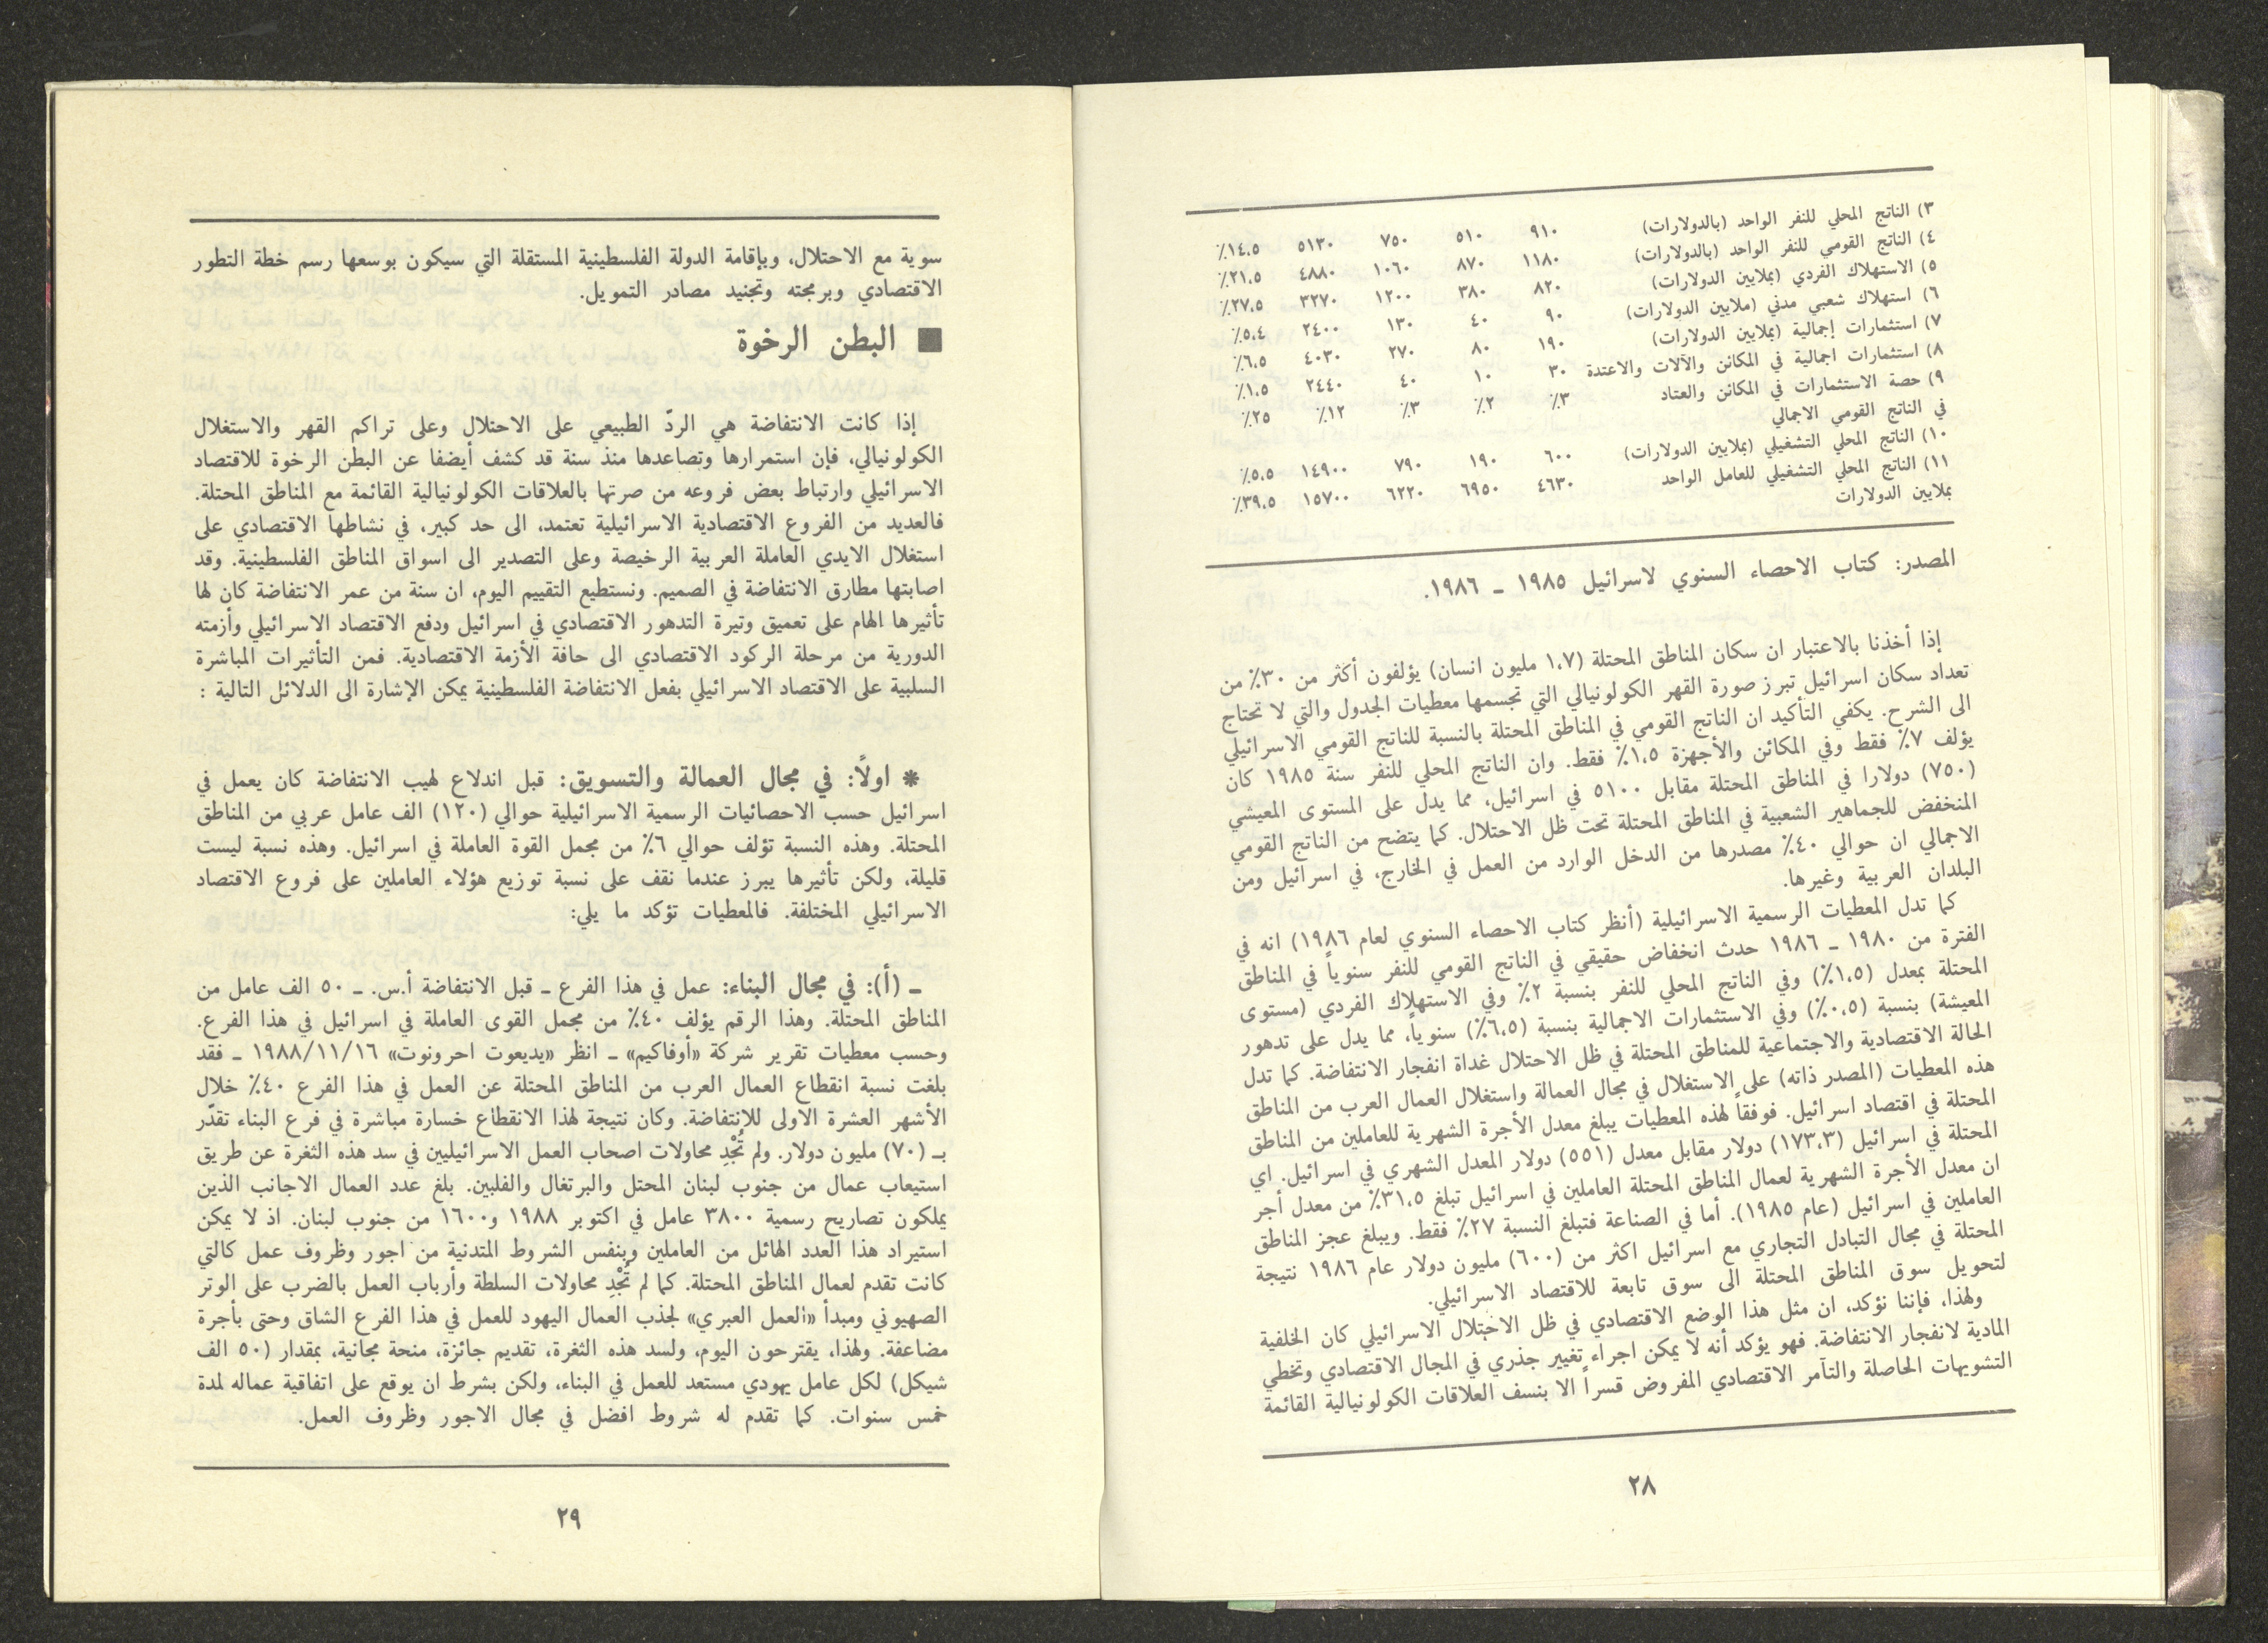 ٣) الناتج المحلي للنفر الواحد (بالدولارات) ٩١٠ ٥١٠ ٧٥٠ ٥١٣٠ ١٤،٥٪
٤) الناتج القومي للنفر الواحد (بالدولارات) ١١٨٠ ٨٧٠ ١٠٦٠ ٤٨٨٠ ٢١،٥٪
٥) الاستهلاك الفردي (بملايين الدولارات) ٨٢٠ ٣٨٠ ١٢٠٠ ٣٢٧٠ ٢٧،٥٪
٦) استهلاك شعبي مدني (ملايين الدولارات) ٩٠ ٤٠ ١٣٠ ٢٤٠٠ ٥،٤٪
٧) استثمارات إجمالية (بملايين الدولارات) ١٩٠ ٨٠ ٢٧٠ ٤٠٣٠ ٦،٥٪
٨) استثمارات اجمالية في المكائن والآلات والاعتدة ٣٠ ١٠ ٤٠ ٢٤٤٠ ١،٥٪
٩) حصة الاستثمارات في المكائن والعتاد ٣٪ ٢٪ ٣٪ ١٢٪ ٢٥٪
في الناتج القومي الاجمالي
١٠) الناتج المحلي التشغيلي (بملايين الدولارات) ٦٠٠ ١٩٠ ٧٩٠ ١٤٩٠٠ ٥،٥٪
١١) الناتج المحلي التشغيلي للعامل الواحد ٤٦٣٠ ٦٩٥٠ ٦٢٢٠ ١٥٧٠٠ ٣٩،٥٪
بملايين الدولارات
المصدر: كتاب الاحصاء السنوي لاسرائيل ١٩٨٥ ــ ١٩٨٦.
إذا أخذنا بالاعتبار ان سكان المناطق المحتلة (١،٧ مليون انسان) يؤلفون أكثر من ٣٠٪ من
تعداد سكان اسرائيل تبرز صورة القهر الكولونيالي التي تجسمها معطيات الجدول والتي لا تحتاج
الى الشرح. يكفي التأكيد ان الناتج القومي في المناطق المحتلة بالنسبة للناتج القومي الاسرائيلي
يؤلف ٧٪ فقط وفي المكائن والأجهزة ١،٥٪ فقط. وان الناتج المحلي للنفر سنة ١٩٨٥ كان
(٧٥٠) دولارا في المناطق المحتلة مقابل ٥١٠٠ في اسرائيل، مما يدل على المستوى المعيشي
المنخفض للجماهير الشعبية في المناطق المحتلة تحت ظل الاحتلال. كما يتضح من الناتج القومي
الاجمالي ان حوالي ٤٠٪ مصدرها من الدخل الوارد من العمل في الخارج، في اسرائيل ومن
البلدان العربية وغيرها.
كما تدل المعطيات الرسمية الاسرائيلية (أنظر كتاب الاحصاء السنوي لعام ١٩٨٦) انه في
الفترة من ١٩٨٠ ــ ١٩٨٦ حدث انخفاض حقيقي في الناتج القومي للنفر سنوياً في المناطق
المحتلة بمعدل (١،٥٪) وفي الناتج المحلي للنفر بنسبة ٢٪ وفي الاستهلاك الفردي (مستوى
المعيشة) بنسبة (٠،٥٪) وفي الاستثمارات الاجمالية بنسبة (٦،٥٪) سنوياً، مما يدل على تدهور
الحالة الاقتصادية والاجتماعية للمناطق المحتلة في ظل الاحتلال غداة انفجار الانتفاضة. كما تدل
هذه المعطيات (المصدر ذاته) على الاستغلال في مجال العمالة واستغلال العمال العرب من المناطق
المحتلة في اقتصاد اسرائيل. فوفقاً لهذه المعطيات يبلغ معدل الأجرة الشهرية للعاملين من المناطق
المحتلة في اسرائيل (١٧٣،٣) دولار مقابل معدل (٥٥١) دولار المعدل الشهري في اسرائيل. اي
ان معدل الأجرة الشهرية لعمال المناطق المحتلة العاملين في اسرائيل تبلغ ٣١،٥٪ من معدل أجر
العاملين في اسرائيل (عام ١٩٨٥). أما في الصناعة فتبلغ النسبة ٢٧٪ فقط. ويبلغ عجز المناطق
المحتلة في مجال التبادل التجاري مع اسرائيل اكثر من (٦٠٠) مليون دولار عام ١٩٨٦ نتيجة
لتحويل سوق المناطق المحتلة الى سوق تابعة للاقتصاد الاسرائيلي.
ولهذا، فإننا نؤكد، ان مثل هذا الوضع الاقتصادي في ظل الاحتلال الاسرائيلي كان الخلفية
المادية لانفجار الانتفاضة. فهو يؤكد أنه لا يمكن اجراء تغيير جذري في المجال الاقتصادي وتخطي
التشويهات الحاصلة والتآمر الاقتصادي المفروض قسراً الا بنسف العلاقات الكولونيالية القائمة
٢٨
سوية مع الاحتلال، وبإقامة الدولة الفلسطينية المستقلة التي سيكون بوسعها رسم خطة التطور
الاقتصادي وبرمجته وتجنيد مصادر التمويل.
■ البطن الرخوة
إذا كانت الانتفاضة هي الردّ الطبيعي على الاحتلال وعلى تراكم القهر والاستغلال
الكولونيالي، فإن استمرارها وتصاعدها منذ سنة قد كشف أيضفا عن البطن الرخوة للاقتصاد
الاسرائيلي وارتباط بعض فروعه من صرتها بالعلاقات الكولونيالية القائمة مع المناطق المحتلة.
فالعديد من الفروع الاقتصادية الاسرائيلية تعتمد، الى حد كبير، في نشاطها الاقتصادي على
استغلال الايدي العاملة العربية الرخيصة وعلى التصدير الى اسواق المناطق الفلسطينية. وقد
اصابتها مطارق الانتفاضة في الصميم. ونستطيع التقييم اليوم، ان سنة من عمر الانتفاضة كان لها
تأثيرها الهام على تعميق وتيرة التدهور الاقتصادي في اسرائيل ودفع الاقتصاد الاسرائيلي وأزمته
الدورية من مرحلة الركود الاقتصادي الى حافة الأزمة الاقتصادية. فمن التأثيرات المباشرة
السلبية على الاقتصاد الاسرائيلي بفعل الانتفاضة الفلسطينية يمكن الإشارة الى الدلائل التالية :
* اولاً: في مجال العمالة والتسويق: قبل اندلاع لهيب الانتفاضة كان يعمل في
اسرائيل حسب الاحصائيات الرسمية الاسرائيلية حوالي (١٢٠) الف عامل عربي من المناطق
المحتلة. وهذه النسبة تؤلف حوالي ٦٪ من مجمل القوة العاملة في اسرائيل. وهذه نسبة ليست
قليلة، ولكن تأثيرها يبرز عندما نقف على نسبة توزيع هؤلاء العاملين على فروع الاقتصاد
الاسرائيلي المختلفة. فالمعطيات تؤكد ما يلي:
ــ (أ): في مجال البناء: عمل في هذا الفرع ــ قبل الانتفاضة أ.س. ــ ٥٠ الف عامل من
المناطق المحتلة. وهذا الرقم يؤلف ٤٠٪ من مجمل القوى العاملة في اسرائيل في هذا الفرع.
وحسب معطيات تقرير شركة «أوفاكيم» ــ انظر «يديعوت احرونوت» ١٩٨٨/١١/١٦ ــ فقد
بلغت نسبة انقطاع العمال العرب من المناطق المحتلة عن العمل في هذا الفرع ٤٠٪ خلال
الأشهر العشرة الاولى للإنتفاضة. وكان نتيجة لهذا الانقطاع خسارة مباشرة في فرع البناء تقدّر
بـ (٧٠) مليون دولار. ولم تُجْدِ محاولات اصحاب العمل الاسرائيليين في سد هذه الثغرة عن طريق
استيعاب عمال من جنوب لبنان المحتل والبرتغال والفلبين. بلغ عدد العمال الاجانب الذين
يملكون تصاريح رسمية ٣٨٠٠ عامل في اكتوبر ١٩٨٨ و١٦٠٠ من جنوب لبنان. اذ لا يمكن
استيراد هذا العدد الهائل من العاملين وبنفس الشروط المتدنية من اجور وظروف عمل كالتي
كانت تقدم لعمال المناطق المحتلة. كما لم تُجْدِ محاولات السلطة وأرباب العمل بالضرب على الوتر
الصهيوني ومبدأ «العمل العبري» لجذب العمال اليهود للعمل في هذا الفرع الشاق وحتى بأجرة
مضاعفة. ولهذا، يقترحون اليوم، ولسد هذه الثغرة، تقديم جائزة، منحة مجانية، بمقدار (٥٠ الف
شيكل) لكل عامل يهودي مستعد للعمل في البناء، ولكن بشرط ان يوقع على اتفاقية عماله لمدة
خمس سنوات. كما تقدم له شروط افضل في مجال الاجور وظروف العمل.
٢٩